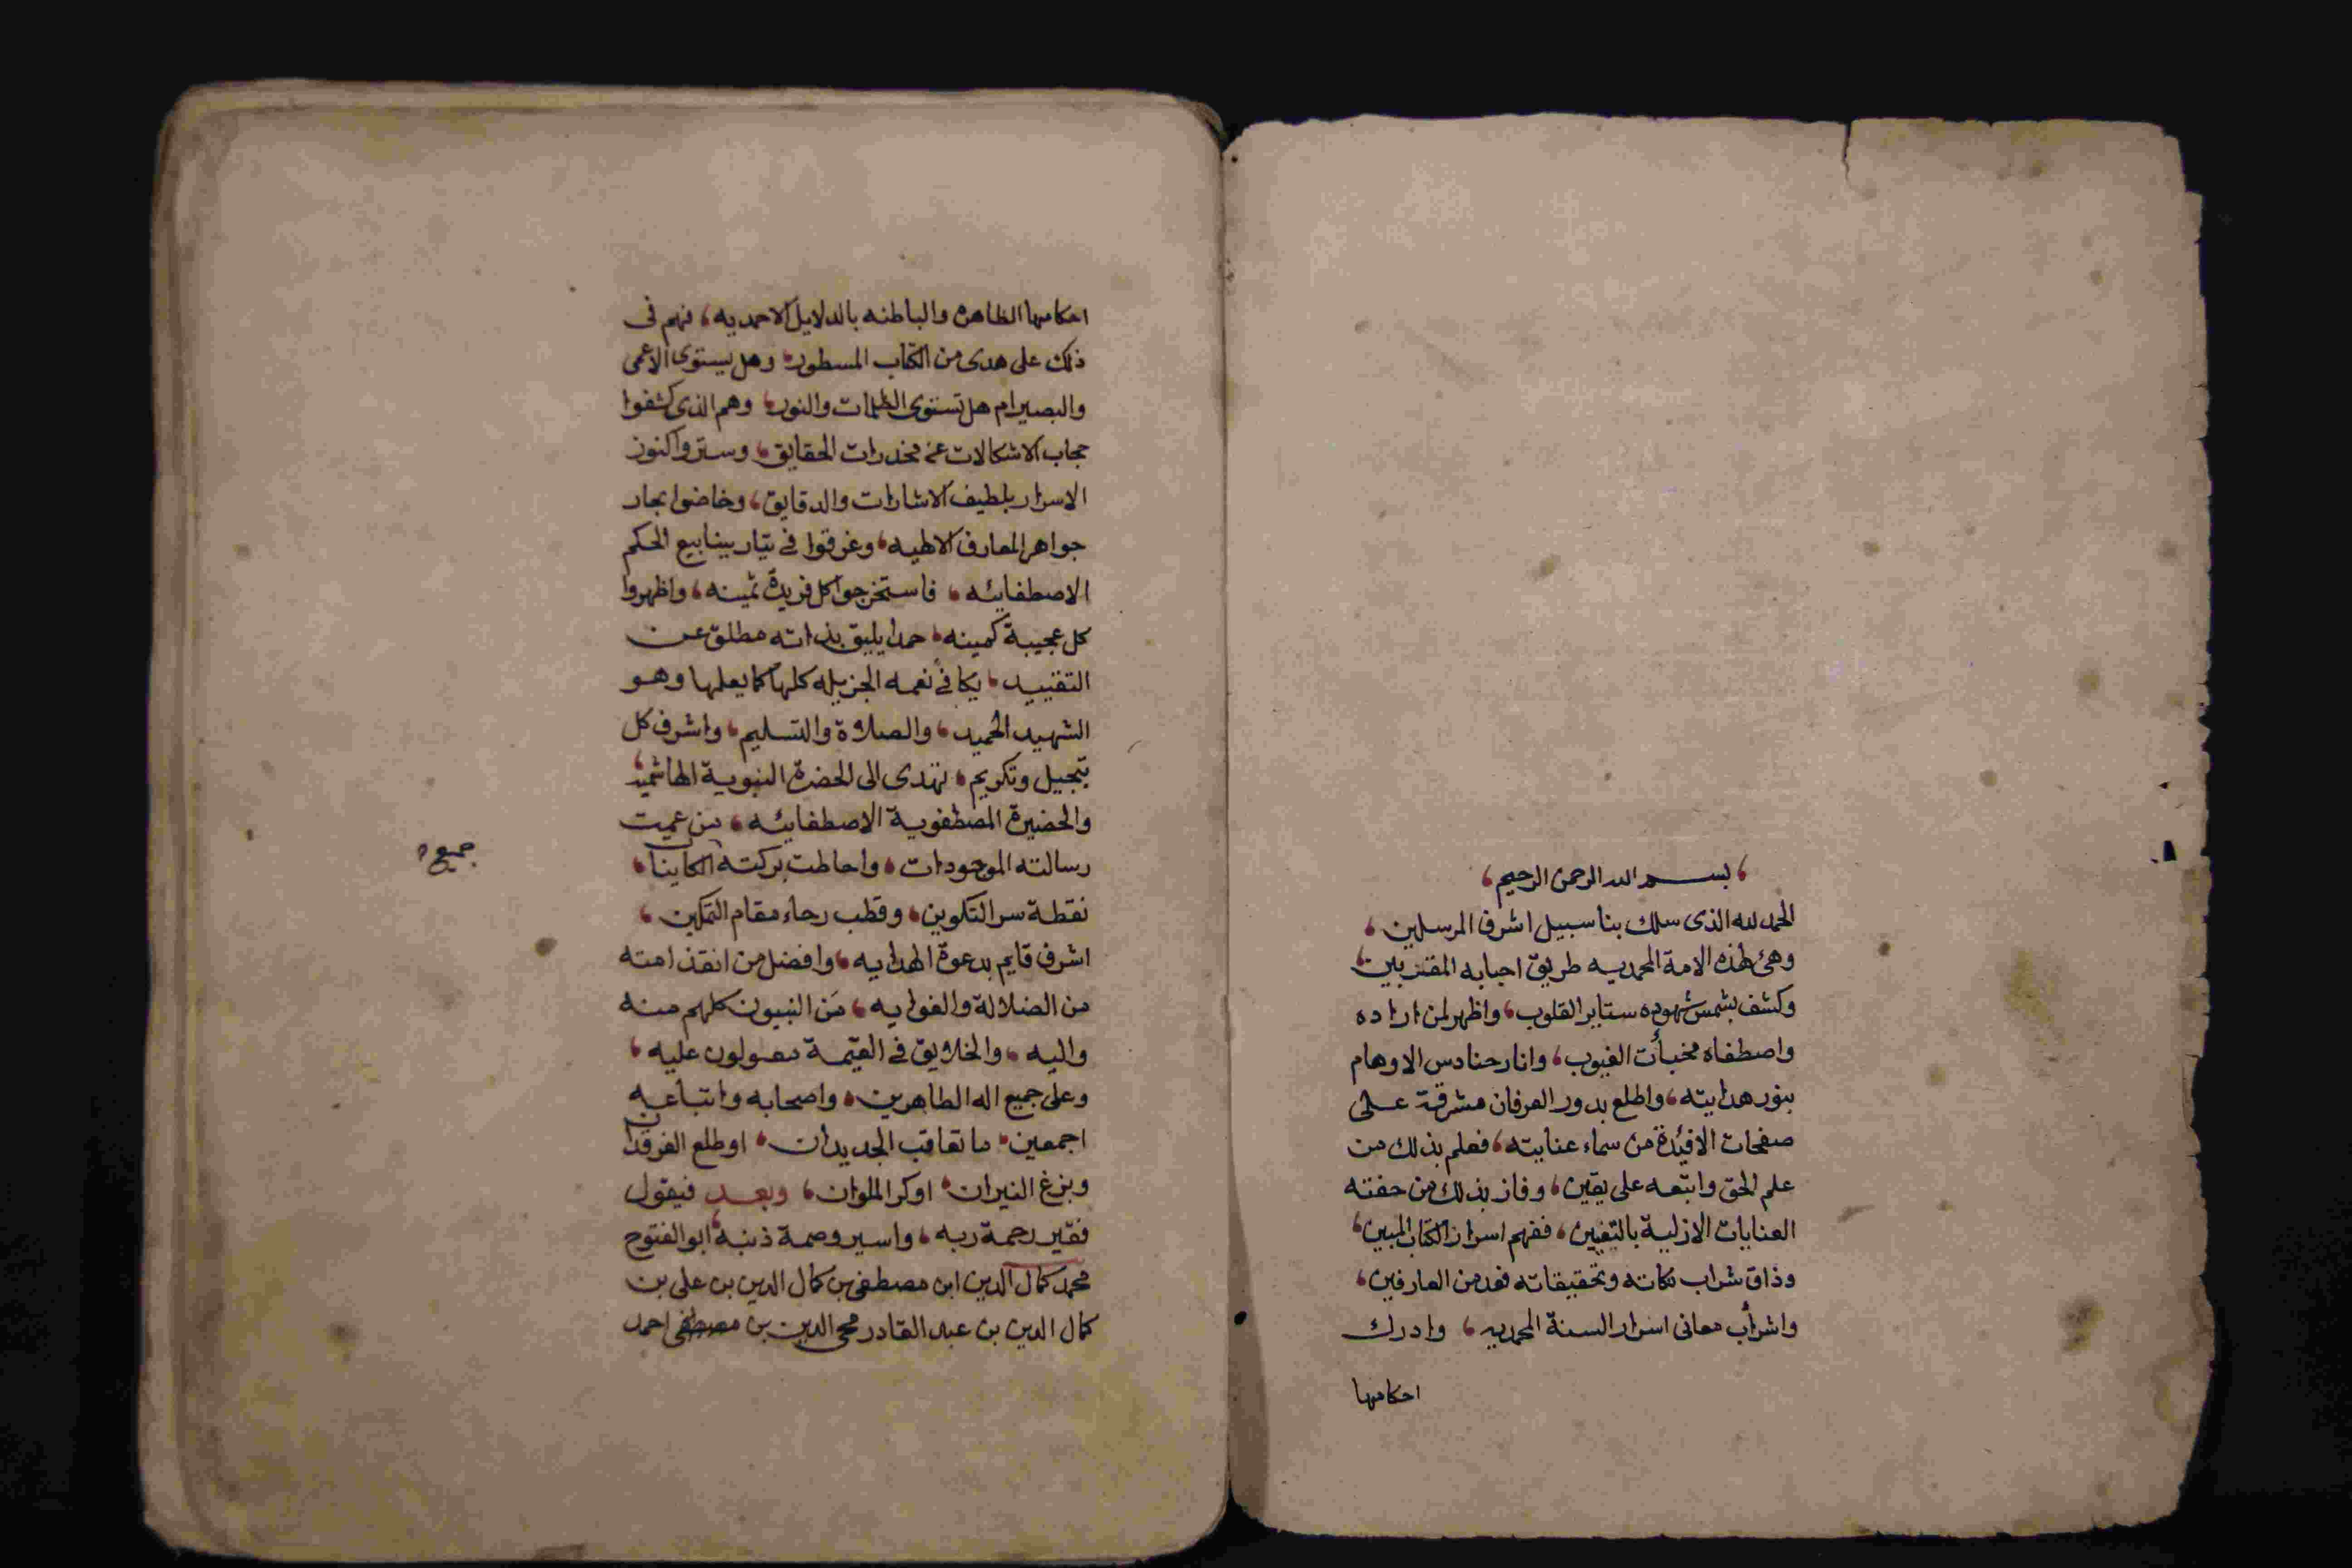 بسم الله الرحمن الرحيم
الحمد لله الذى سلك بنا سبيل اشرف المرسلين
وهئ لهذه الامة المحمديه طريق احبابه المقتربين
وكشف بشمس شهوده ستاير القلوب، واظهر لمن اراده
واصطفاه مخبأت الغيوب، وانار حنادس الاوهام
بنور هدايته، واطلع بدور العرفان مشرقة على
صفحات الافئدة من سماء عنايته، فعلم بذلك من
علم الحق واتبعه على يقين، وفاز بذلك من حفته
العنايات الازلية بالتعيين، ففهم اسرار الكتاب المبين،
وذاق شراب نكاته وتحقيقاته فعد من العارفين،
واشرأب معانى اسرار السنة المحمديه، وادرك
احكامها
احكامها الظاهره والباطنه بالدلايل الاحمديه، فهم فى
ذلك على هدى من الكتاب المسطور، وهل يستوى الاعمى
والبصير ام هل تستوى الظلمات والنور، وهم الذى كشفوا
حجاب الاشكالات عن مخدرات الحقايق، وستروا كنوز
الاسرار بلطيف الاشارات والدقايق، وخاضوا بحار
جواهر المعارف الالهيه، وغرقوا فى تيار ينابيع الحكم
الاصطفائيه، فاستخرجوا كل فريدة ثمينه، واظهروا
كل عجيبة كمينه، حمدا يليق بذاته مطلق عن
التقييد، يكافئ نعمه الجزيله كلها كما يعلمها وهو
الشهيد الحميد، والصلاة والتسليم، واشرف كل
تبجيل وتكريم، تهدى الى الحضرة النبوية الهاشميه،
والحضيرة المصطفوية الاصطفائيه، من عميت
رسالته الموجودات، واحاطت بركته الكاينات،
جميع
نقطة سر التكوين، وقطب رحاء مقام التمكين،
اشرف قايم بدعوة الهدايه، وافضل من انقذ امته
من الضلالة والغوايه، مَن النبيون كلهم منه
واليه، والخلايق فى القيمة معولون عليه،
وعلى جميع اله الطاهرين، واصحابه واتباعه
اجمعين، ما تعاقب الجديدان، او طلع الفرقدان
وبزغ النيران، او كر الملوان، وبعد فيقول
فقير رحمة ربه، واسير وصمة ذنبه، ابو الفتوح
محمد كمال الدين ابن مصطفى بن كمال الدين بن على بن
كمال الدين بن عبد القادر محى الدين بن مصطفى احمد